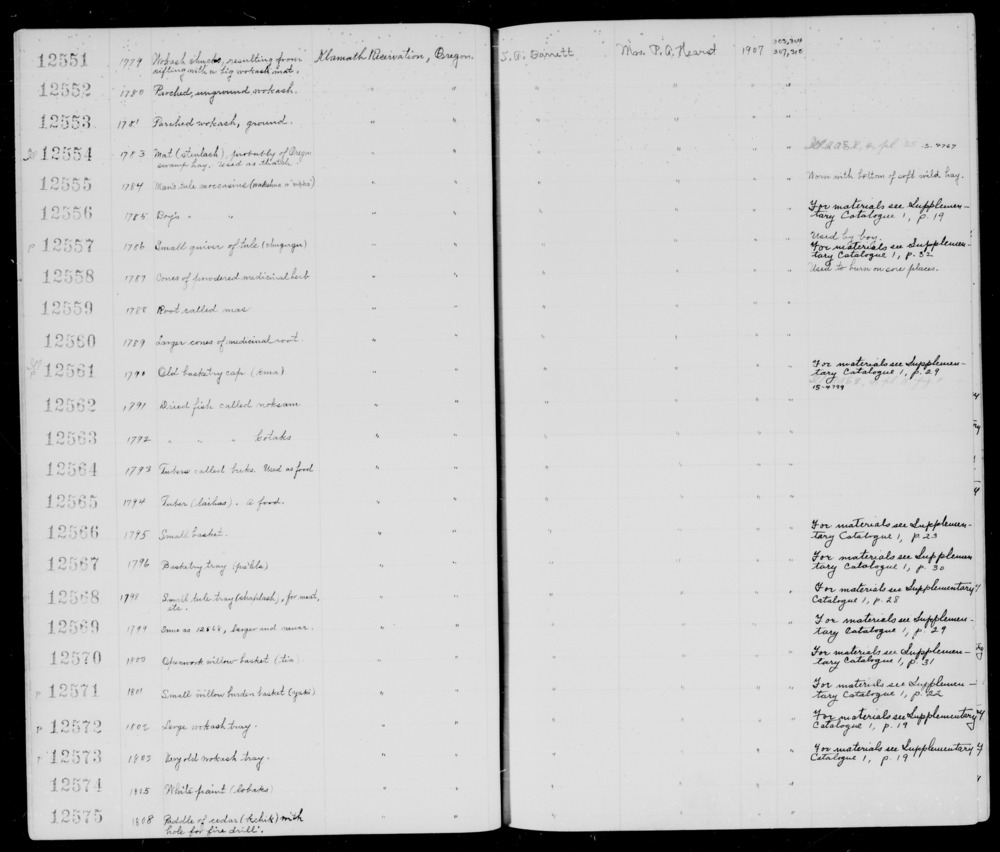 12551 1779 Wokash shucks, resulting from Klamath Reservation, Oregon. S. A. Barrett Mrs. P. A. Hearst 1907 303, 304
sifting with a big wokash mat. 307, 308
12552 1780 Parched, unground wokash. " " " " " "
12553 1781 Parched wokash, ground. " " " " " "
12554 1783 Mat (stenlash), probably of Oregon " " " " " " 15-4767
swamp hay. Used as thatch.
12555 1784 Man's tule moccasins " " " " " " Worn with bottom of soft wild hay.
12556 1785 Boy's " " " " " " " " For materials see Supplemen-
tary Catalogue 1, p. 19
Used by boy.
P 12557 1786 Small quiver of tule " " " " " " For materials see Supplemen-
tary Catalogue 1, p. 32
12558 1787 Cones of powdered medicinal herb " " " " " " Used to burn on sore places.
12559 1788 Root called mas " " " " " "
12560 1789 Larger cones of medicinal root. " " " " " "
12561 1790 Old basketry cap. (kma) " " " " " " For materials see Supplemen-
tary Catalogue 1, p. 29
15-4799
12562 1791 Dried fish called noksam " " " " " "
12563 1792 " " " kotaks " " " " " "
12564 1793 Tubers called buks. Used as food " " " " " "
12565 1794 Tuber. A food. " " " " " "
12566 1795 Small basket. " " " " " " For materials see Supplemen-
tary Catalogue 1, p. 23
12567 1796 Basketry tray (psekla) " " " " " " For materials see Supplemen
tary Catalogue 1, p. 30
12568 1798 Small tule tray (shaplash), for meat, " " " " " " For materials see Supplementary
etc. Catalogue 1, p. 28
12569 1799 Same as 12568, larger and newer. " " " " " " For materials see Supplemen-
tary Catalogue 1, p. 29
12570 1800 Openwork willow basket (tia) " " " " " " For materials see Supplemen-
tary Catalogue 1, p. 31
P 12571 1801 Small willow burden basket (yaki) " " " " " " For materials see Supplemen-
tary Catalogue 1, p. 22
P 12572 1802 Large wokash tray. " " " " " " For materials see Supplementary
Catalogue 1, p. 19
12573 1803 Very old wokash tray. " " " " " " For materials see Supplementary
Catalogue 1, p. 19
12574 1805 White paint (lobaks) " " " " " "
12575 1808 Paddle of cedar (kchik) with " " " " " "
hole for fire drill.